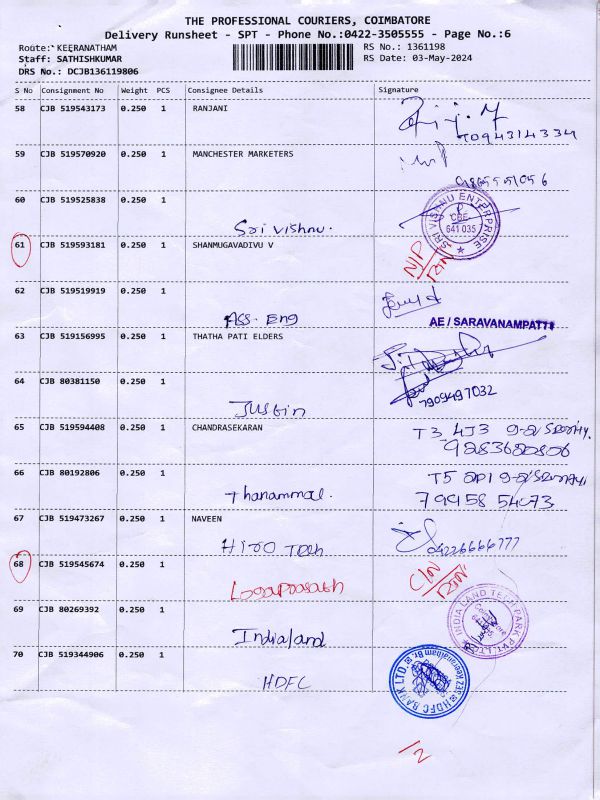 THE PROFESSIONAL COURIERS, COIMBATORE
Delivery Runsheet - SPT - Phone No.:0422-3505555 - Page No.:6
Route: KEERANATHAM
RS No.: 1361198
Staff: SATHISHKUMAR
RS Date: 03-May-2024
DRS No.: DCJB136119806
S No Consignment No Weight PCS Consignee Details Signature
58 CJB 519543173 0.250 1 RANJANI
7094314334
59 CJB 519570920 0.250 1 MANCHESTER MARKETERS
60 CJB 519525838 0.250 1
Sri Vishnu.
SRI VISHNU ENTERPRISE
CBE
641 035
61 CJB 519593181 0.250 1 SHANMUGAVADIVU V
N/P
RTN
62 CJB 519519919 0.250 1
Ass. Eng
AE / SARAVANAMPATTI
63 CJB 519156995 0.250 1 THATHA PATI ELDERS
64 CJB 80381150 0.250 1
Justin
7909497032
65 CJB 519594408 0.250 1 CHANDRASEKARAN
T3 4J3
66 CJB 80192806 0.250 1
Thanammal.
T5
79958 54073
67 CJB 519473267 0.250 1 NAVEEN
Hiro Tech
04226666777
68 CJB 519545674 0.250 1
C/N
RTN
69 CJB 80269392 0.250 1
Indialand
INDIA LAND TECH PARK PVT. LTD.
70 CJB 519344906 0.250 1
HDFC
HDFC BANK LTD. Keeranatham Br.
1/2